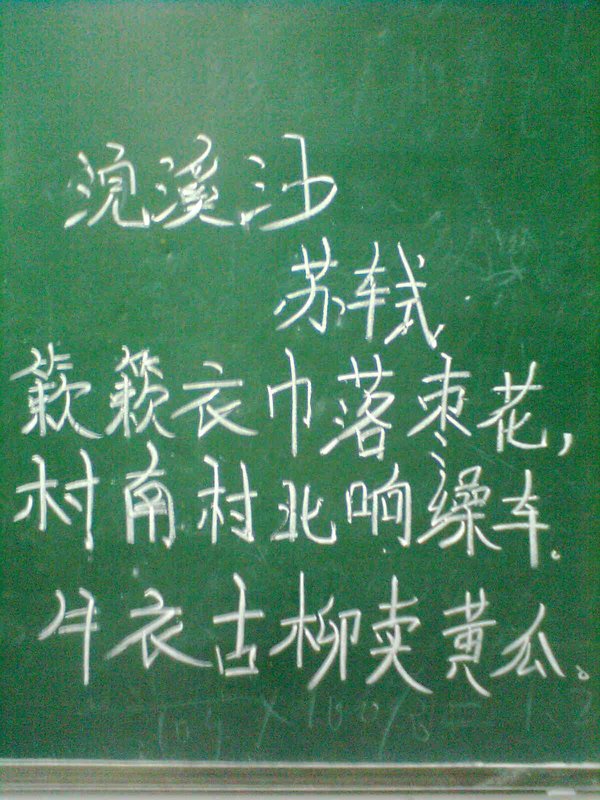 浣溪沙
苏轼
簌簌衣巾落枣花,
村南村北响缲车.
牛衣古柳卖黄瓜。
×100%=